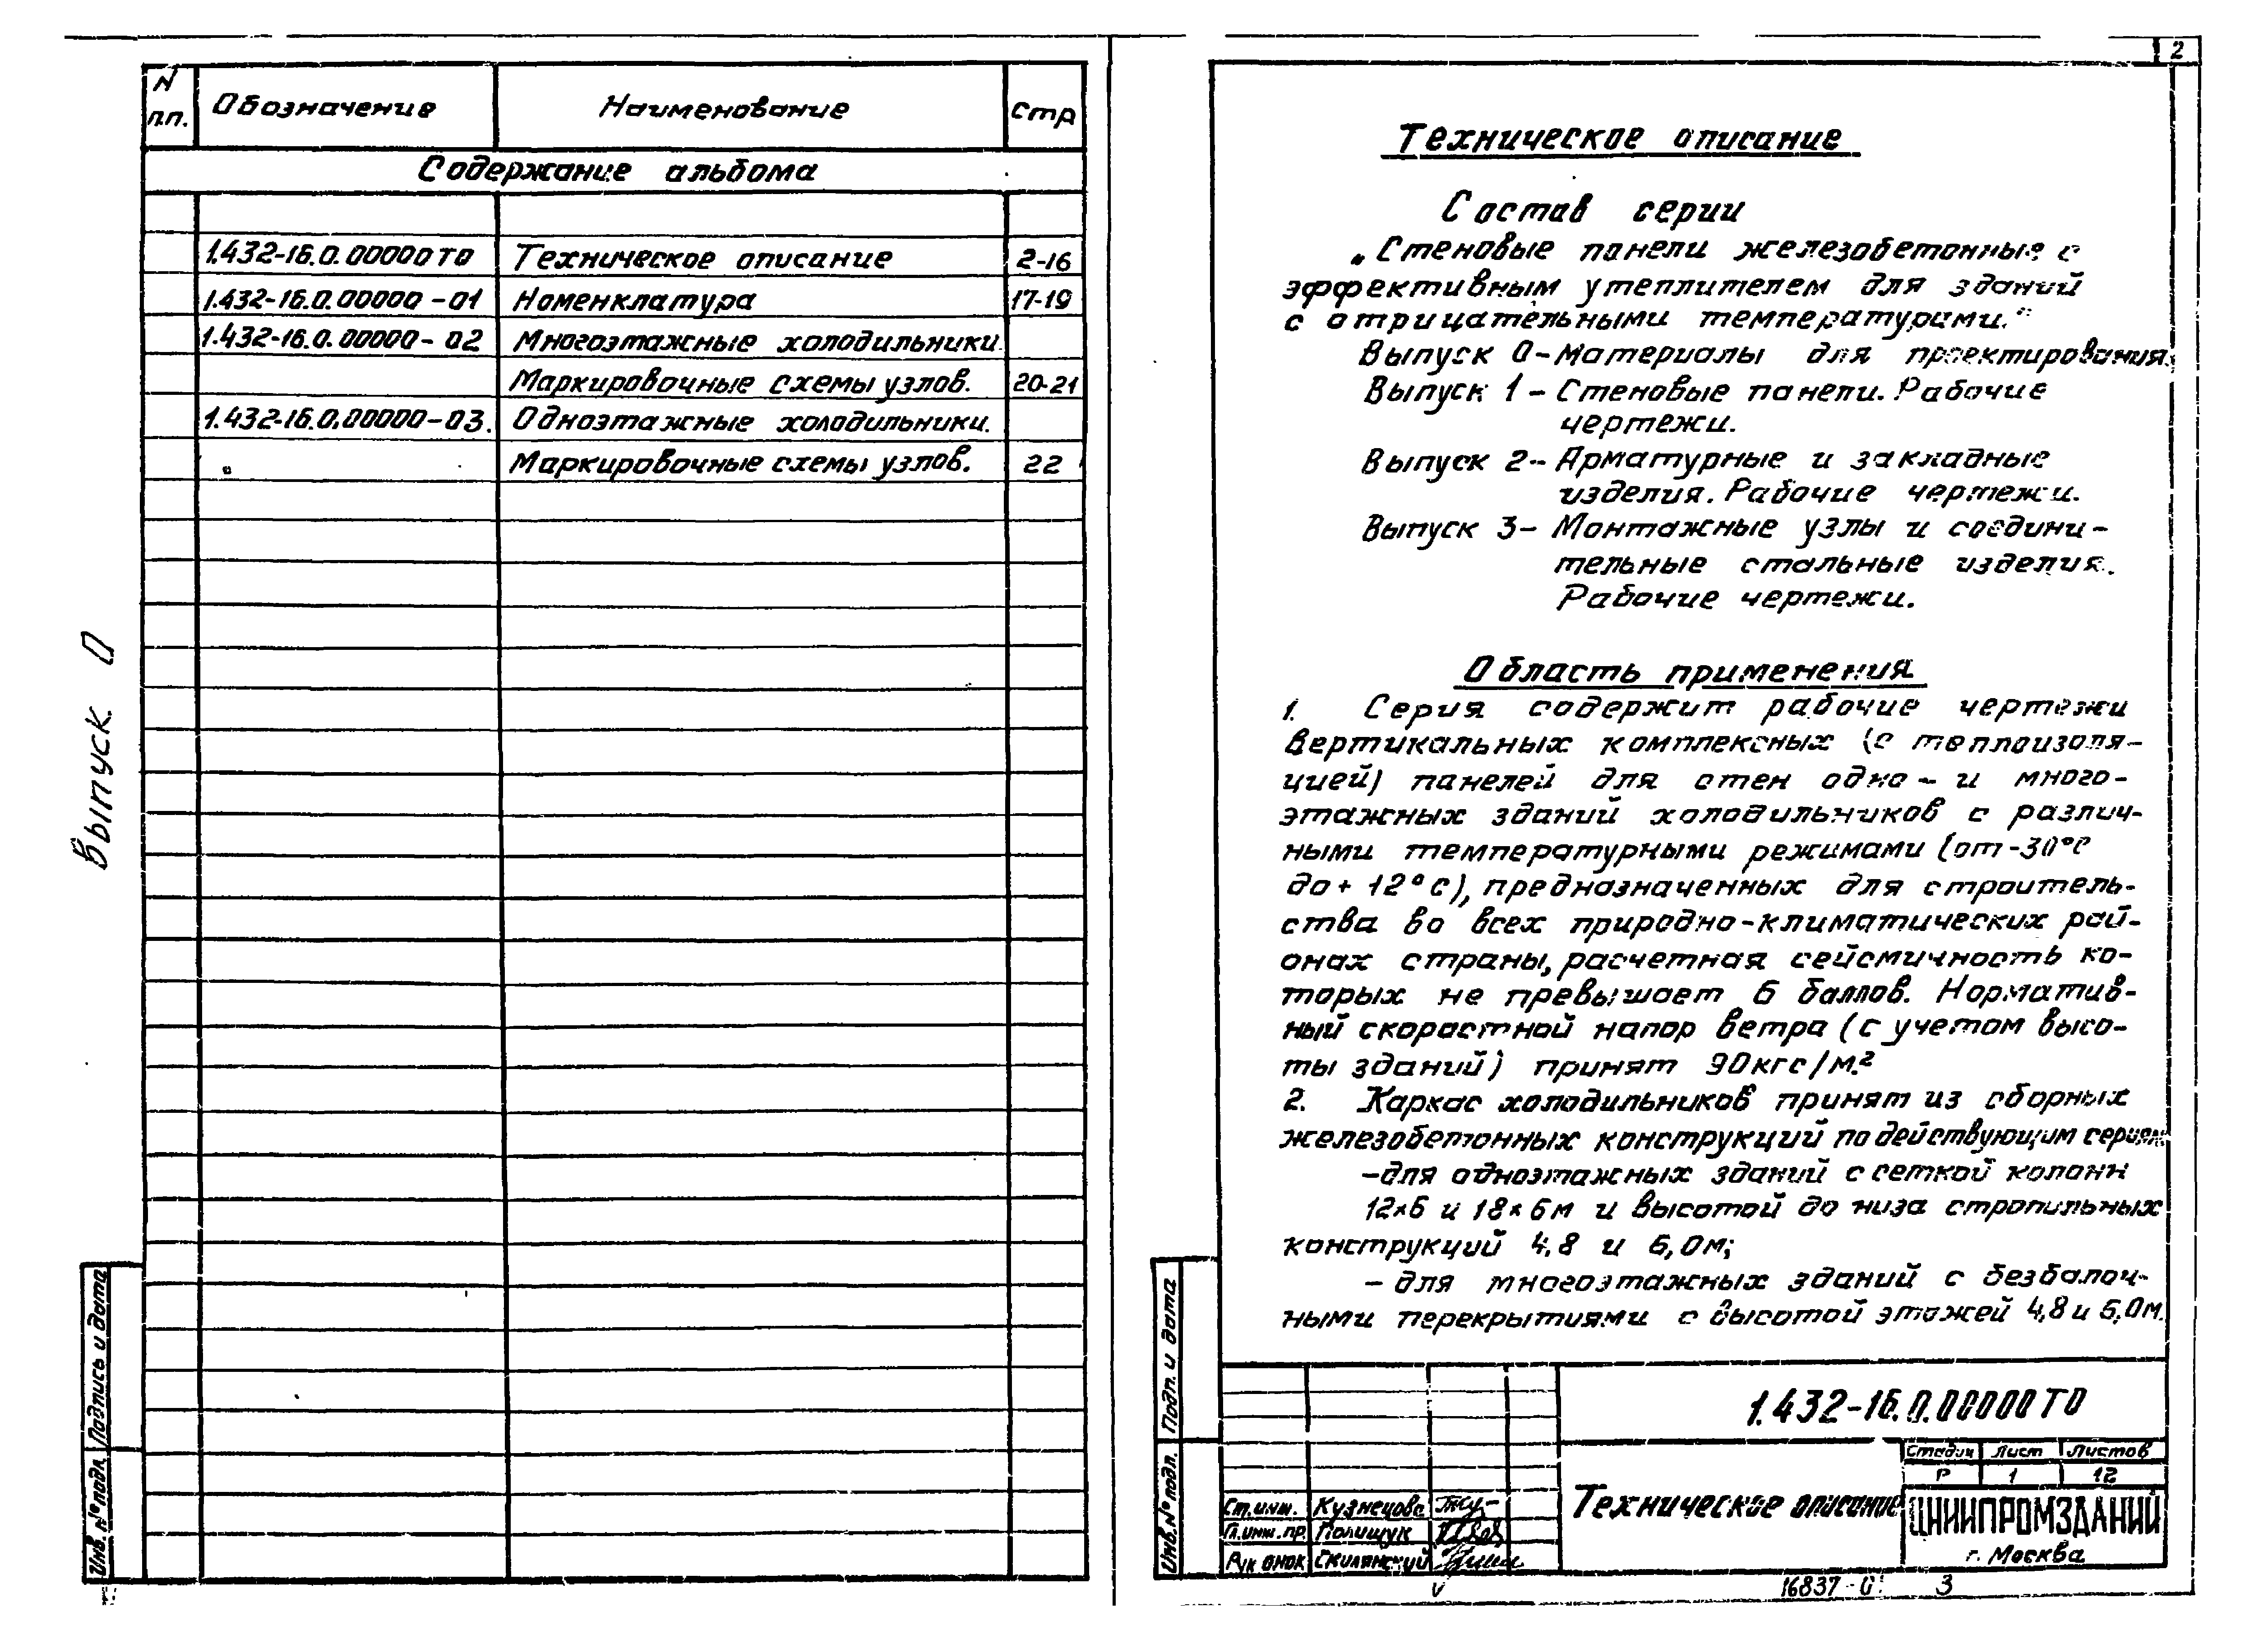 N п.п. Обозначение Наименование Стр
Содержание альбома
1.432-16.0.00000ТО Техническое описание 2-16
1.432-16.0.00000-01 Номенклатура 17-19
1.432-16.0.00000-02 Многоэтажные холодильники.
Маркировочные схемы узлов. 20-21
1.432-16.0.00000-03. Одноэтажные холодильники.
Маркировочные схемы узлов. 22
Выпуск 0
Подпись и дата
Инв. № подл.
2
Техническое описание
Состав серии
„Стеновые панели железобетонные с
эффективным утеплителем для зданий
с отрицательными температурами."
Выпуск 0-Материалы для проектирования.
Выпуск 1 - Стеновые панели. Рабочие
чертежи.
Выпуск 2- Арматурные и закладные
изделия. Рабочие чертежи.
Выпуск 3- Монтажные узлы и соедини-
тельные стальные изделия.
Рабочие чертежи.
Область применения
1. Серия содержит рабочие чертежи
вертикальных комплексных (с теплоизоля-
цией) панелей для стен одно- и много-
этажных зданий холодильников с различ-
ными температурными режимами (от -30°С
до + 12°С), предназначенных для строитель-
ства во всех природно-климатических рай-
онах страны, расчетная сейсмичность ко-
торых не превышает 6 баллов. Норматив-
ный скоростной напор ветра (с учетом высо-
ты зданий) принят 90кгс/м.²
2. Каркас холодильников принят из сборных
железобетонных конструкций по действующим сериям
-для одноэтажных зданий с сеткой колонн
12×6 и 18×6м и высотой до низа стропильных
конструкций 4.8 и 6,0м;
- для многоэтажных зданий с безбалоч-
ными перекрытиями с высотой этажей 4,8 и 6,0м.
Подп. и дата
Инв. № подл.
1.432-16.0.00000ТО
Стадия Лист Листов
Р 1 12
Техническое описание
ЦНИИПРОМЗДАНИЙ
г. Москва
Ст.инж. Кузнецова
Гл.инж.пр. Полищук
Рук ОНОК Смилянский
16837-01 3